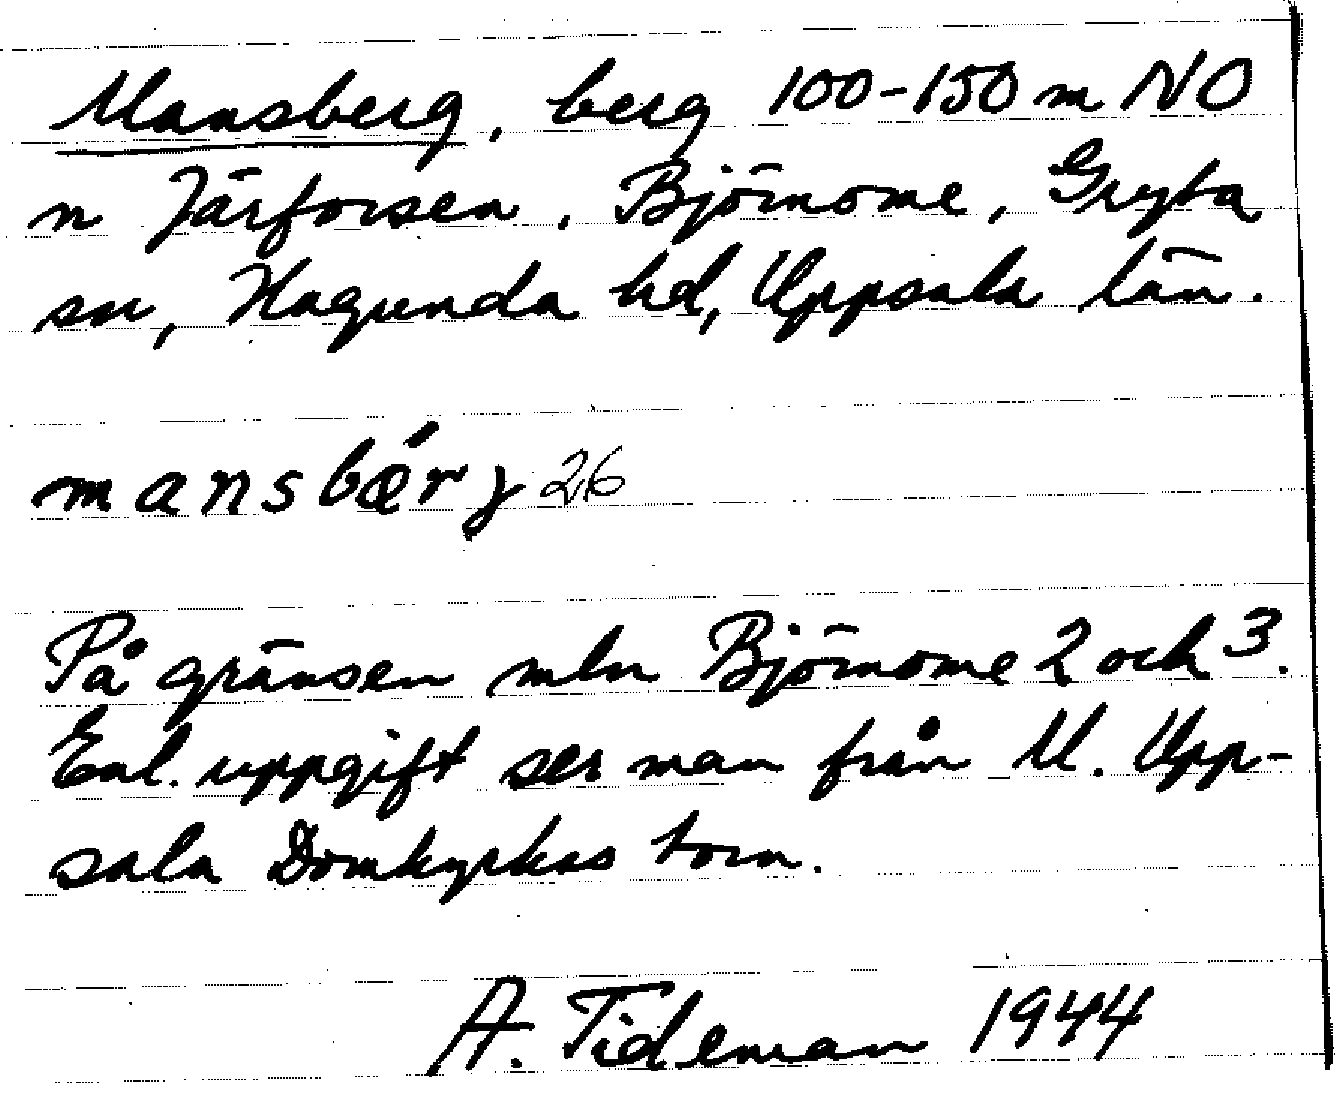 Mansberg, berg 100-150 m NO
n Järforsen. Björnome, Gryta
sn, Hagunda hd, Uppsala län.
mansbǽrɣ 26
På gränsen mln Björnome 2 och 3.
Enl. uppgift ser man från M. Upp-
sala Domkyrkas torn.
A. Tideman 1944